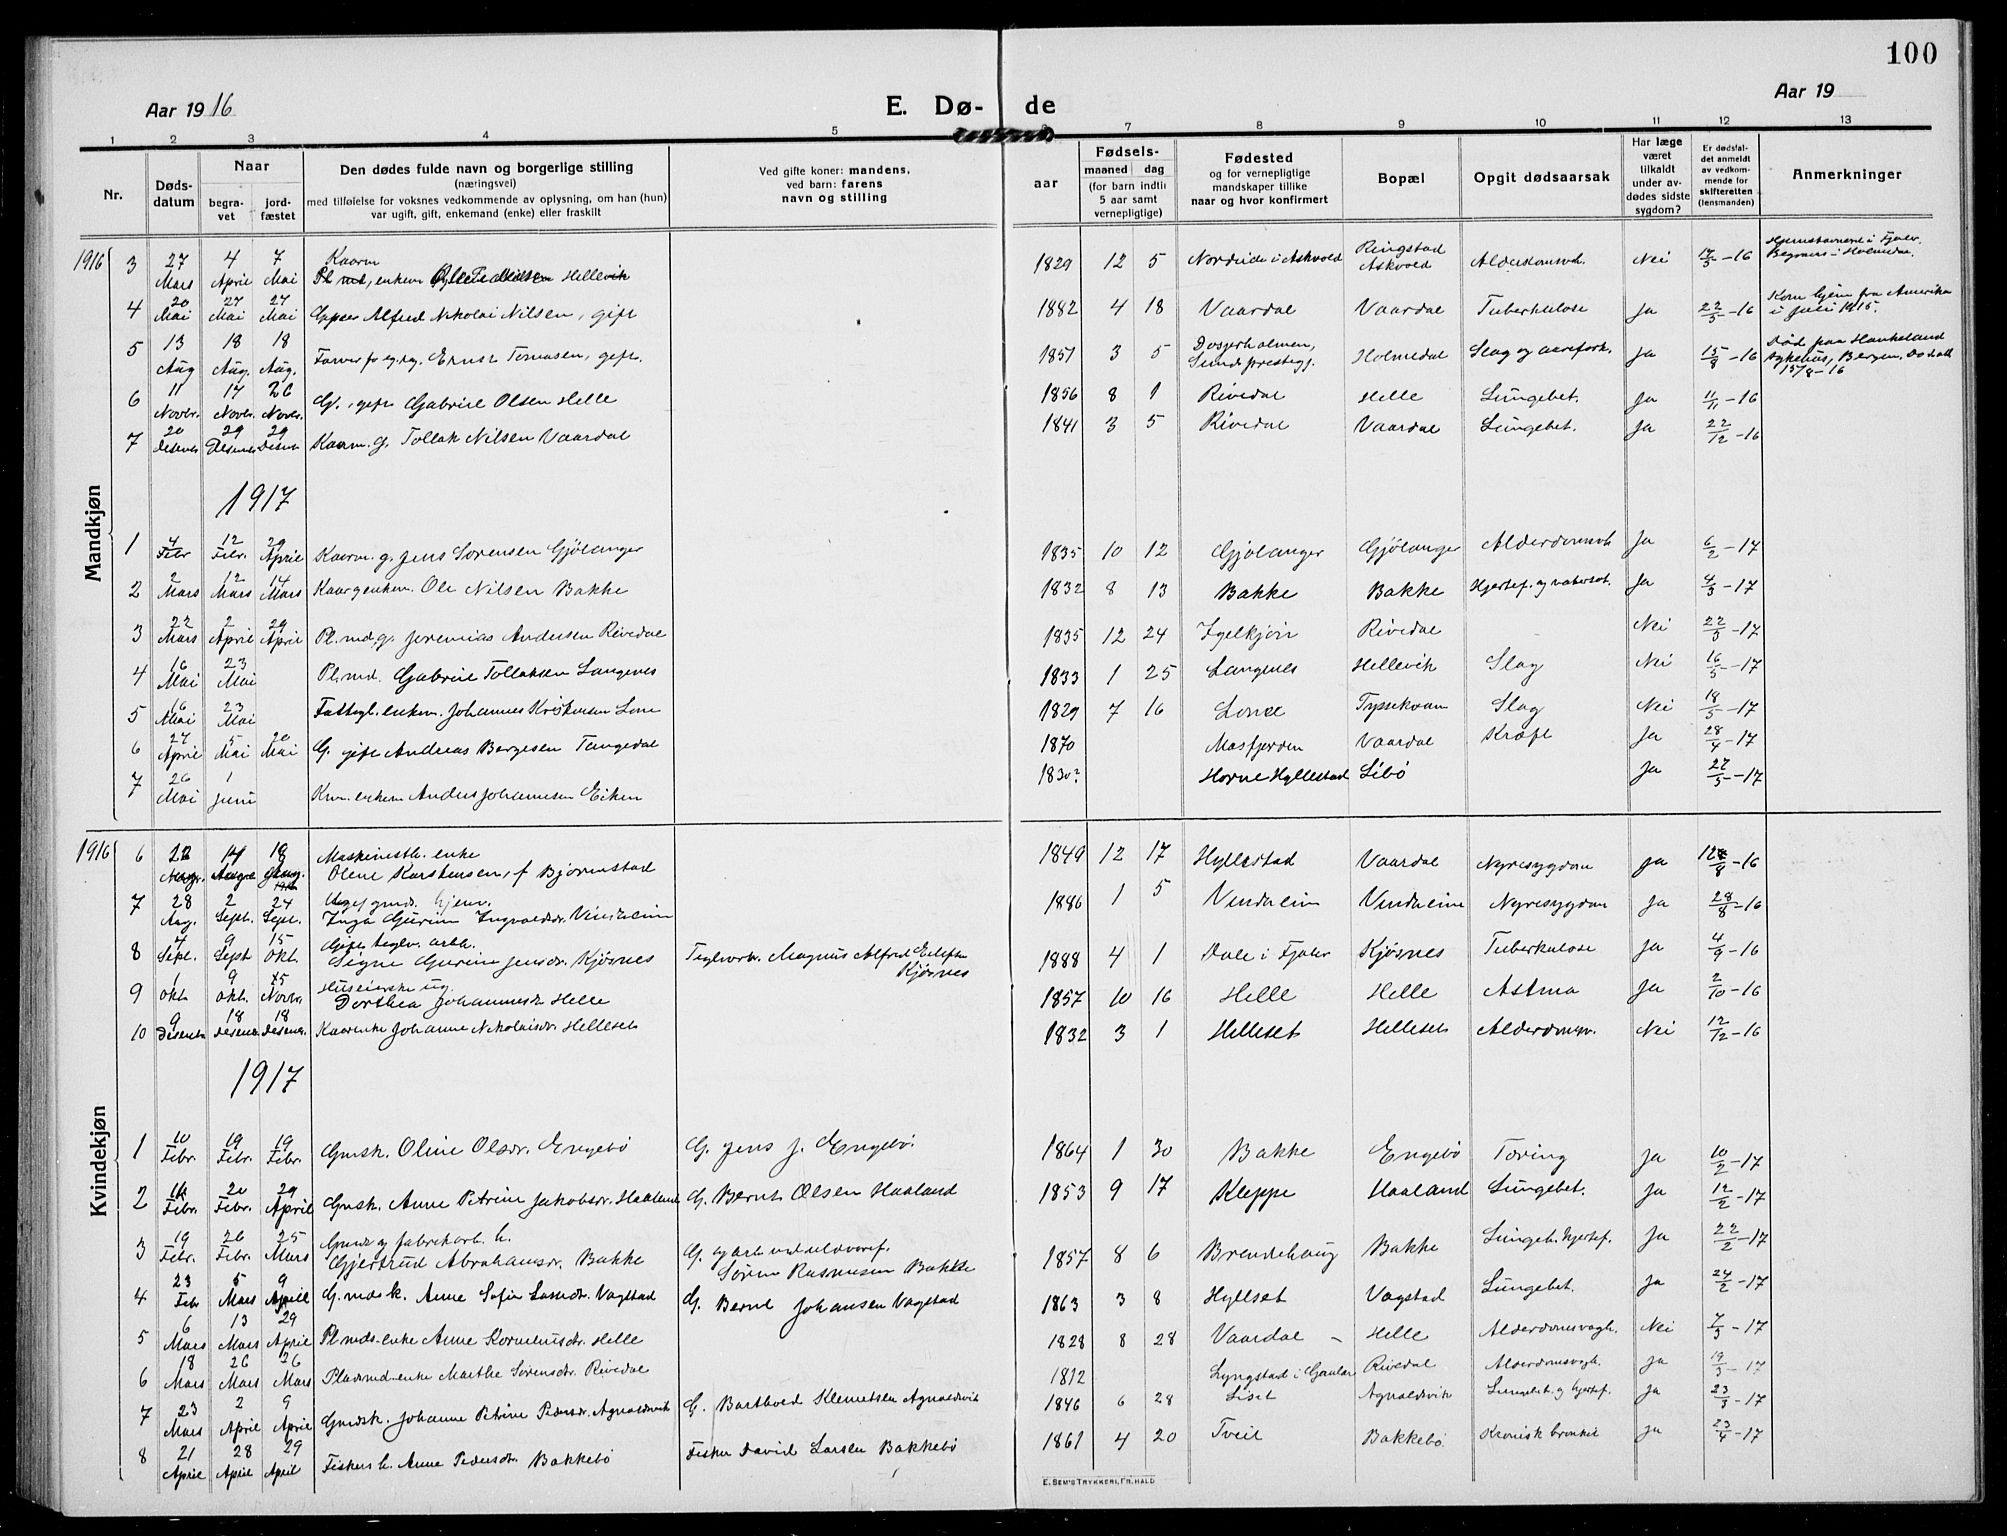 100
Aar 1916
E. Dø- de
Aar 19
1 2 3 4 5 6 7 8 9 10 11 12 13
Nr.
Døds-datum
Naar
begra-vet
jord-fæstet
Den dødes fulde navn og borgerlige stilling
(næringsvei)
med tilføielse for voksnes vedkommende av oplysning, om han (hun)
var ugift, gift, enkemand (enke) eller fraskilt
Ved gifte koner: mandens,
ved barn: farens
navn og stilling
aar
Fødsels-
maaned dag
(for barn indtil
5 aar samt
vernepligtige)
Fødested
og for vernepligtige
mandskaper tillike
naar og hvor konfirmert
Bopæl
Opgit dødsaarsak
Har læge
været
tilkaldt
under av-
dødes sidste
sygdom?
Er dødsfal-
det anmeldt
av vedkom-
mende for
skifteretten
(lensmanden)
Anmerkninger
Mandkjøn
1916 3 27 Mars 4 April 7 Mai Kaarm Pl. md, enkem Hellevik 1829 12 5 Nordeide i Askvold Ringstad Askvold Alderdomsvd. Nei 17/5-16 Hjemstavnsret i Fjaler. Begraves i Holmedal.
4 20 Mai 27 Mai 27 Mai Alfred Nikolai Nilsen, gift 1882 4 18 Vaardal Vaardal Tuberkulose Ja 22/5-16 Kom hjem fra Amerika i juli 1915.
5 13 Aug 18 Aug. 18 Aug. Farver fo eg. Ernst Tomasen, gift. 1851 3 5 Holmedal Slag og aarefork. Ja 15/8-16 Død paa Haukeland sykehus, Bergen. 15/8-16
6 11 Novbr. 17 Novbr. 26 Novbr. G., gift Gabriel Olsen Helle 1856 8 1 Rivedal Helle Lungebet. Ja 11/11-16
7 20 Desemb 29 Desemb 29 Desemb Kaarm. g. Tollak Nilsen Vaardal 1841 3 5 Rivedal Vaardal Lungebet. Ja 22/12-16
1917
1 4 Febr 12 Febr. 29 April Kaarm. g. Jens Sørensen Gjølanger 1835 10 12 Gjølanger Gjølanger Alderdomsvk Ja 6/2-17
2 2 Mars 12 Mars 14 Mars Kaarg enkem. Ole Nilsen Bakke 1832 8 13 Bakke Bakke Hjertef. og vatersot. Ja 4/3-17
3 22 Mars 2 April 29 April Pl. md. g. Jeremias Andersen Rivedal 1835 12 24 Igelkjøn Rivedal Nei 22/3-17
4 16 Mai 23 Mai Pl. md. Gabriel Tollaksen Langenes 1833 1 25 Langenes Hellevik Slag Nei 16/5-17
5 16 Mai 23 Mai Fattigl. enkem. Johannes Kristensen Lone 1829 7 16 Lone Tyssekvam Slag Nei 18/5-17
6 27 April 5 Mai 20 Mai G. gift Andreas Børgesen Tangedal 1870 Masfjorden Vaardal Kræft Ja 28/4-17
7 26 Mai 1 juni Krm. enkem Anders Johannesen Eiken 1830? Horne Hyllestad Libø Ja 27/5-17
Kvindekjøn
1916 6 22 Aug. 14 Aug. 18 Maskinisth. enke Olene Karstensen, f Bjørnstad 1849 12 17 Hyllestad Vaardal Nyresygdom Ja 12/8-16
7 28 Aug. 2 Sept. 24 Sept. Ug. gmds. hjem. Inga Gurine Ingvaldsdr. Vindalein 1886 1 5 Vindalein Vindalein Nyresygdom Ja 28/8-16
8 4 Sept. 9 Sept 15 Okt. Gift teglv. arb. Signe Gurine Jensdr. Kjøsnes Teglverk. Magnus Alfred Kjøsnes 1888 4 1 Dale i Fjaler Kjøsnes Tuberkulose Ja 4/9-16
9 1 Okt. 9 Okt. 15 Novbr. Huseierske ug. Dorthea Johannesdr Helle 1857 10 16 Helle Helle Astma Ja 2/10-16
10 9 Desemb 18 Desemb 18 Desemb Kaarenke Johanne Nikolaisdr. Helleset 1832 3 1 Helleset Helleset Alderdomsv. Nei 12/12-16
1917
1 10 Febr. 19 Febr. 19 Febr. Gmsk. Oline Olsdr. Engebø G. Jens J. Engebø. 1864 1 30 Bakke Engebø Tæring Ja 10/2-17
2 Febr. 20 Febr. 29 April Gmsk. Anne Petrine Jakobsdr. Haaland G. Bernt Olsen Haaland 1853 9 17 Kleppe Haaland Lungebet. Ja 12/2-17
3 19 Febr. 26 Febr. 25 Mars Gmds og fabrikarb. h. Gjertrud Abrahamsdr. Bakke G. og arb ved uldvaref. Søren Rasmusen Bakke 1857 8 6 Brendehaug Bakke Lungeb. hjertef. Ja 22/2-17
4 23 Febr 5 Mars 9 April G. mds k. Anne Sofie Larsdr. Vagstad G. Bernt Johansen Vagstad 1863 3 8 Hyllset Vagstad Lungebet. Ja 24/2-17
5 6 Mars 13 Mars 29 April Pl. mds-enke Anne Korneliusdr. Helle 1828 8 28 Vaardal - Helle Alderdomsvagh. Nei 7/3-17
6 18 Mars 26 Mars 26 Mars Pladsmd-enke Marthe Sørensdr. Rivedal 1812 Lyngstad i Gaular Rivedal Alderdomsvagh. Ja 19/3-17
7 23 Mars 2 April 9 April Gmdsk. Johanne Petrine Pedersdr. Agnaldsvik G. Barthold Klemetsen Agnaldsvik 1846 6 28 Liset Agnaldsvik Lungebet. og hjertef. Ja 23/3-17
8 21 April 28 April 29 April Fiskers h. Anne Pedersdr. Bakkebø Fisker David Larsen Bakkebø 1861 4 20 Tveit Bakkebø. Kronisk bronkit Ja 23/4-17
E. SEM'S TRYKKERI, FR. HALD